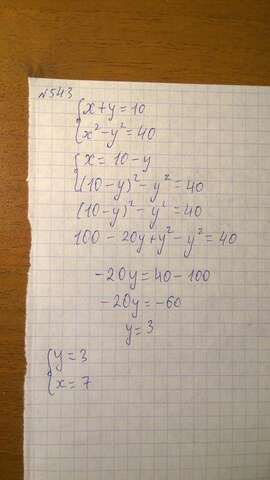 №543
x+y=10
x²-y²=40
x=10-y
(10-y)²-y²=40
(10-y)²-y²=40
100-20y+y²-y²=40
-20y=40-100
-20y=-60
y=3
y=3
x=7